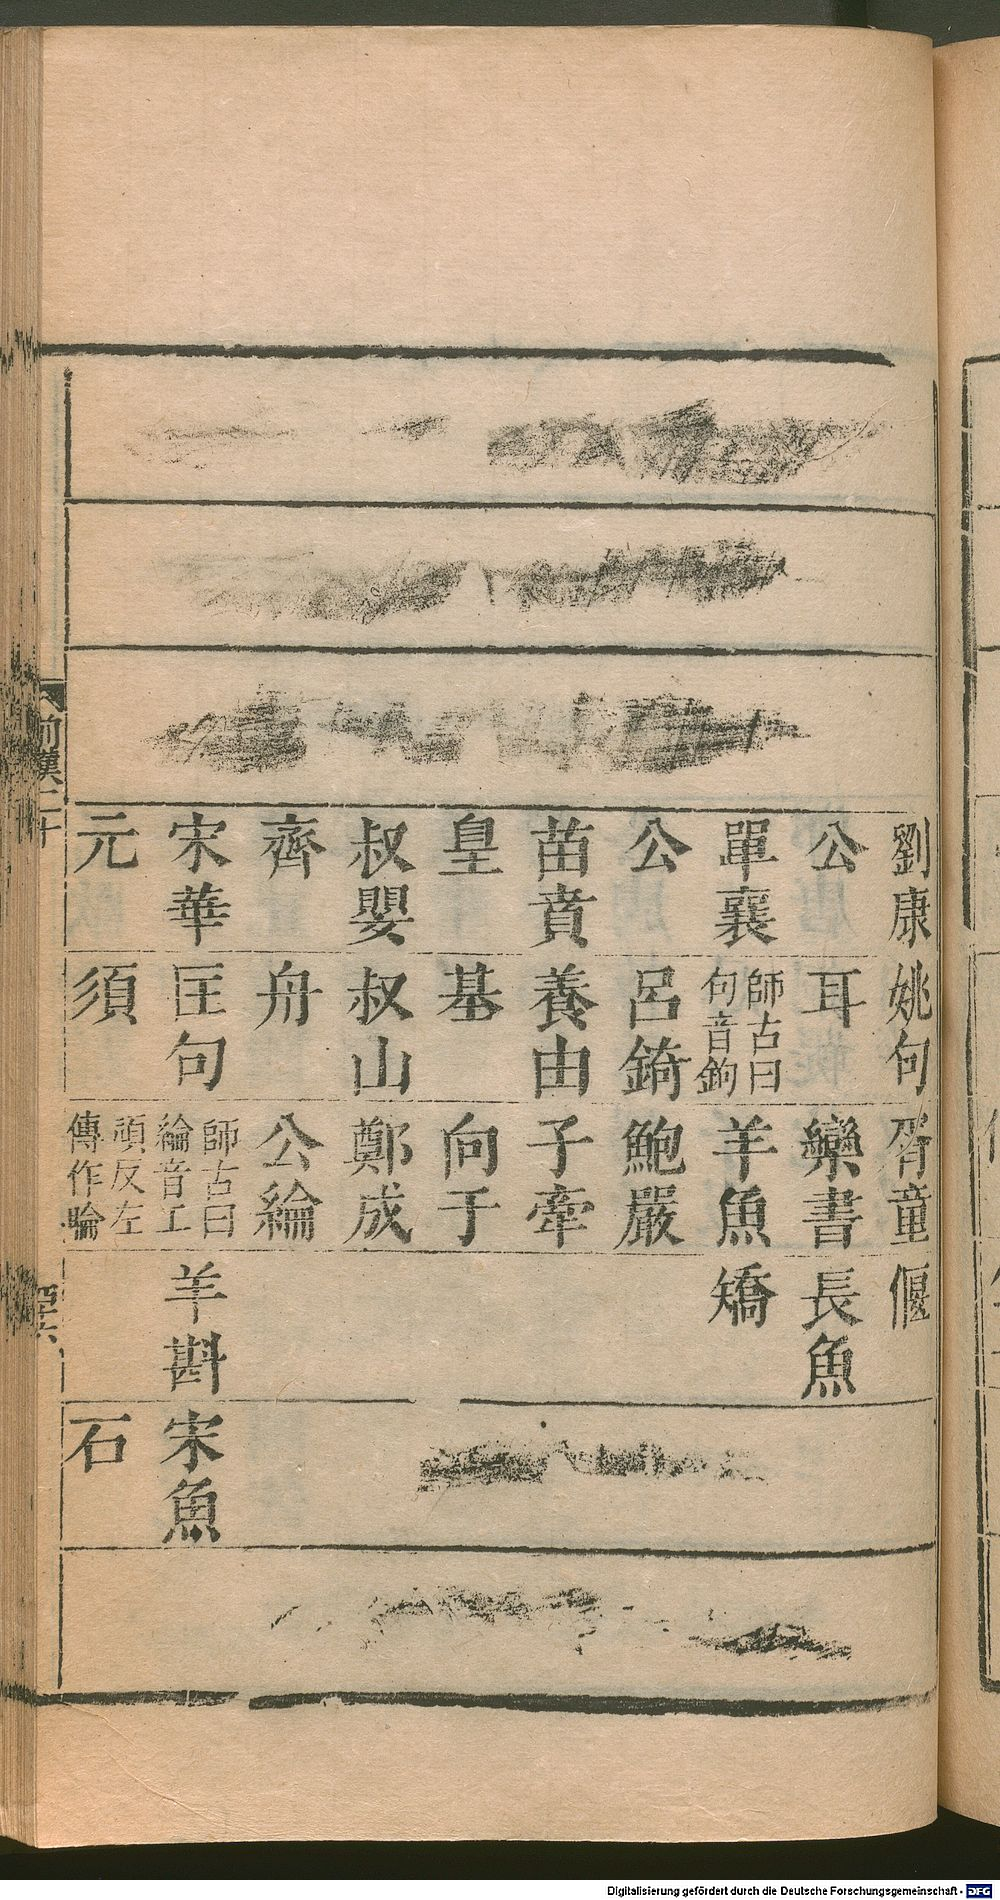 劉康
公
單襄
公
苗賁
皇
叔嬰
齊
宋華
元
姚句
耳
師古曰
句音鉤
呂錡
養由
基
叔山
舟
匡句
須
胥童
欒書
羊魚
鮑嚴
子牽
向于
鄭成
公綸
師古曰
綸音工
頑反左
傳作睔
偃
長魚
矯
羊斟
宋魚
石
前漢二十
Digitalisierung gefördert durch die Deutsche Forschungsgemeinschaft - DFG